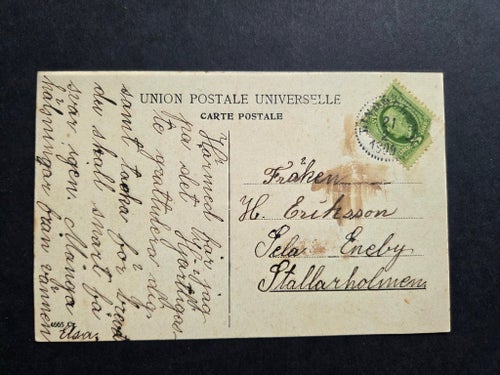 UNION POSTALE UNIVERSELLE
CARTE POSTALE
Härmed får jag
på det Hjertligas
te gratulera dig
samt tacka för brevt
du skall snart få
svar igen. Många
hälsningar från vännen
Elsa
Fröken
H. Eriksson
Sela Eneby
Stallarholmen
21